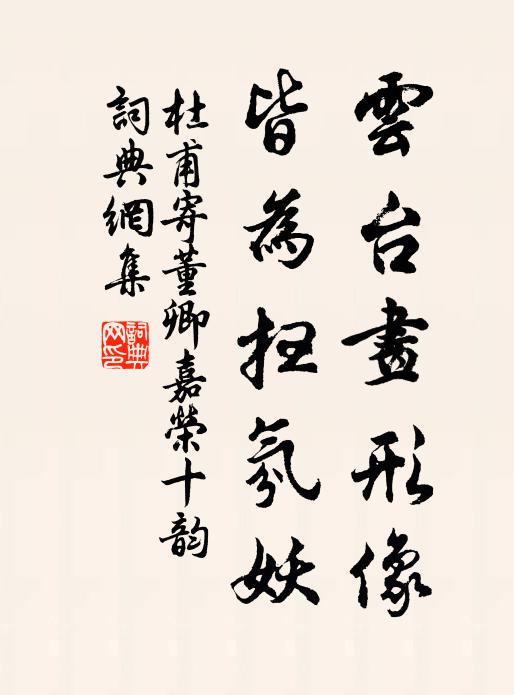 雲台畫形像
皆為掃氛妖
杜甫寄董卿嘉榮十韵
詞典網集
詞典
网印